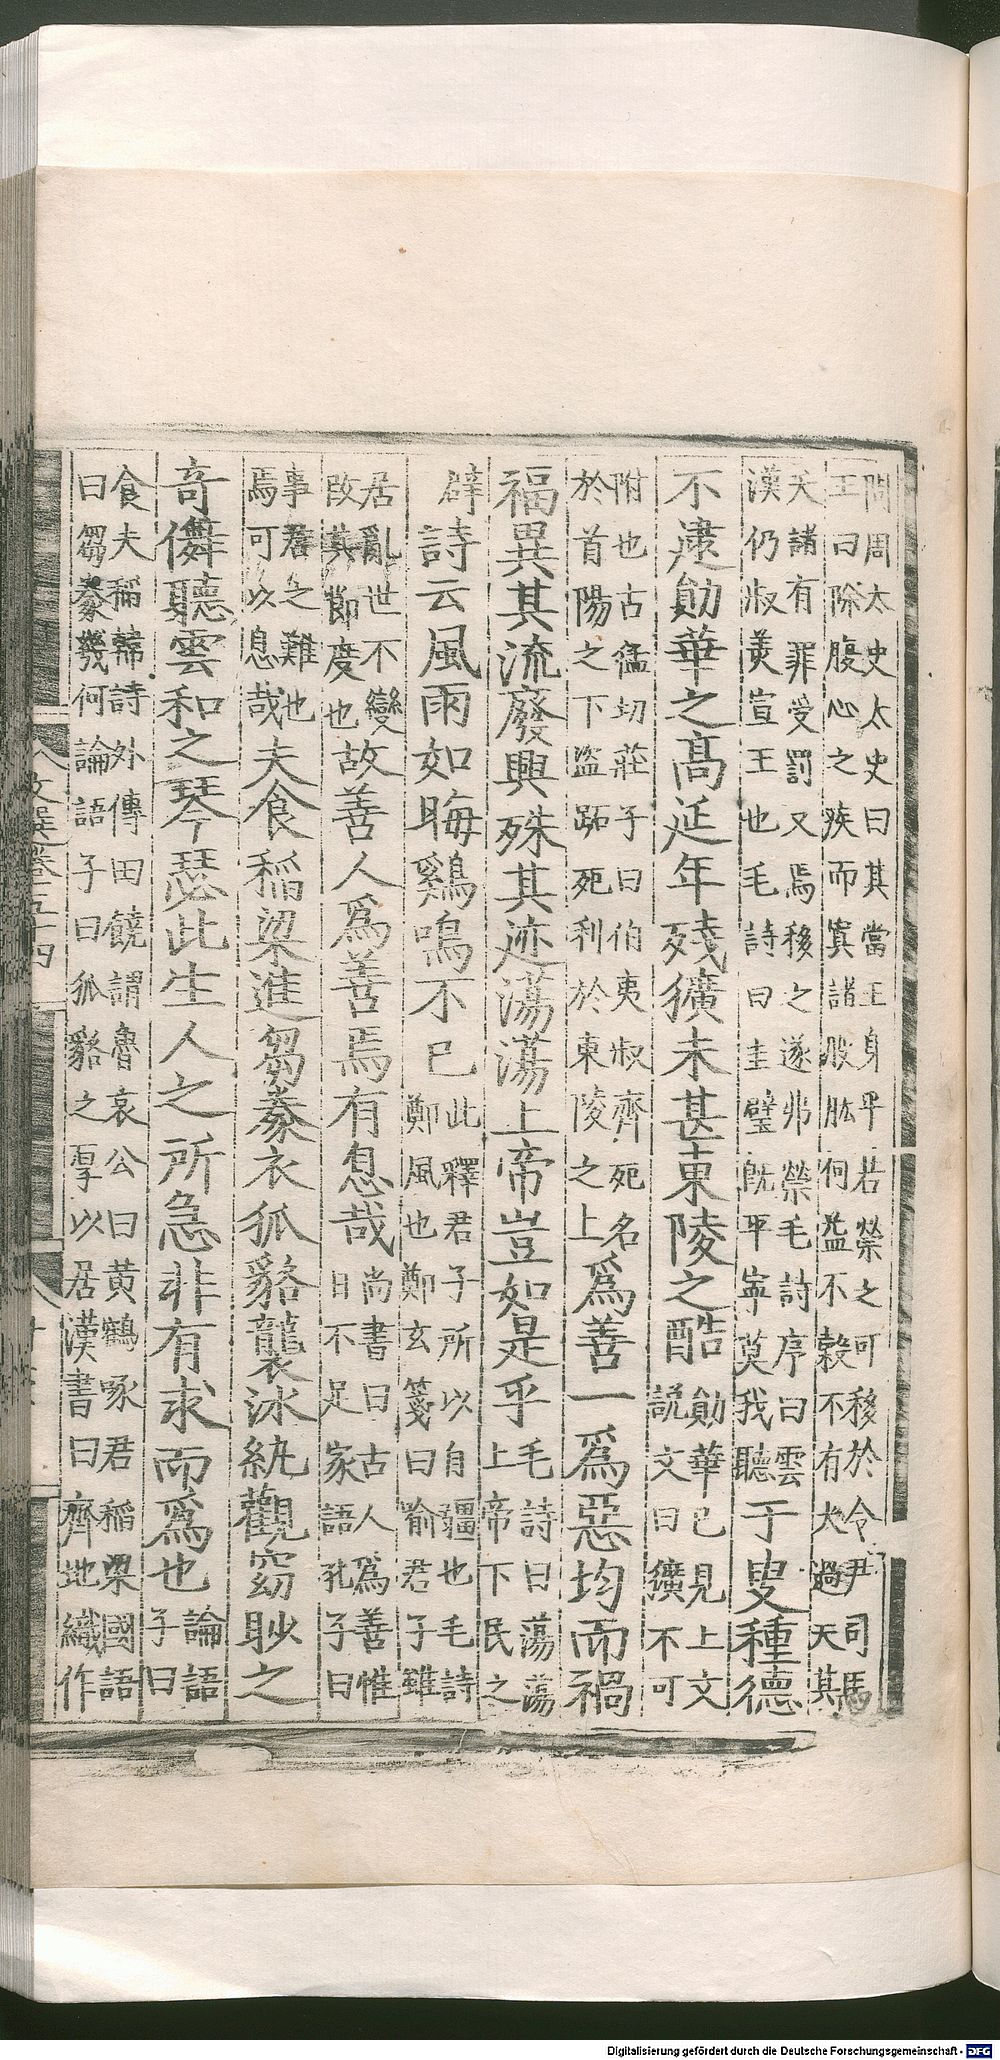 問周太史太史曰其當王身乎若禜之可移於令尹司馬
王曰除腹心之疾而寘諸股肱何益不穀不有大過天其
夭諸有罪受罰又焉移之遂弗禜毛詩序曰雲
漢仍叔美宣王也毛詩曰圭璧既平寧莫我聽
于叟種德
不逮勛華之高延年殘獷未甚東陵之酷
勛華已見上文
說文曰獷不可
附也古猛切莊子曰伯夷叔齊死名
於首陽之下盜跖死利於東陵之上
爲善一爲惡均而禍
福異其流廢興殊其迹蕩蕩上帝豈如是乎
毛詩曰蕩蕩
上帝下民之
辟
詩云風雨如晦雞鳴不已
此釋君子所以自彊也毛詩
鄭風也鄭玄箋曰喻君子雖
居亂世不變
改其節度也
故善人爲善焉有息哉
尚書曰古人爲善惟
日不足家語孔子曰
事君之難也
焉可以息哉
夫食稻梁進芻豢衣狐貉襲冰紈觀窈眇之
奇儛聽雲和之琴瑟此生人之所急非有求而爲也
論語
子曰
食夫稻韓詩外傳田饒謂魯哀公曰黃鶴啄君稻梁國語
曰芻豢幾何論語子曰狐貉之厚以居漢書曰齊地織作
文選卷五十四
Digitalisierung gefördert durch die Deutsche Forschungsgemeinschaft - DFG